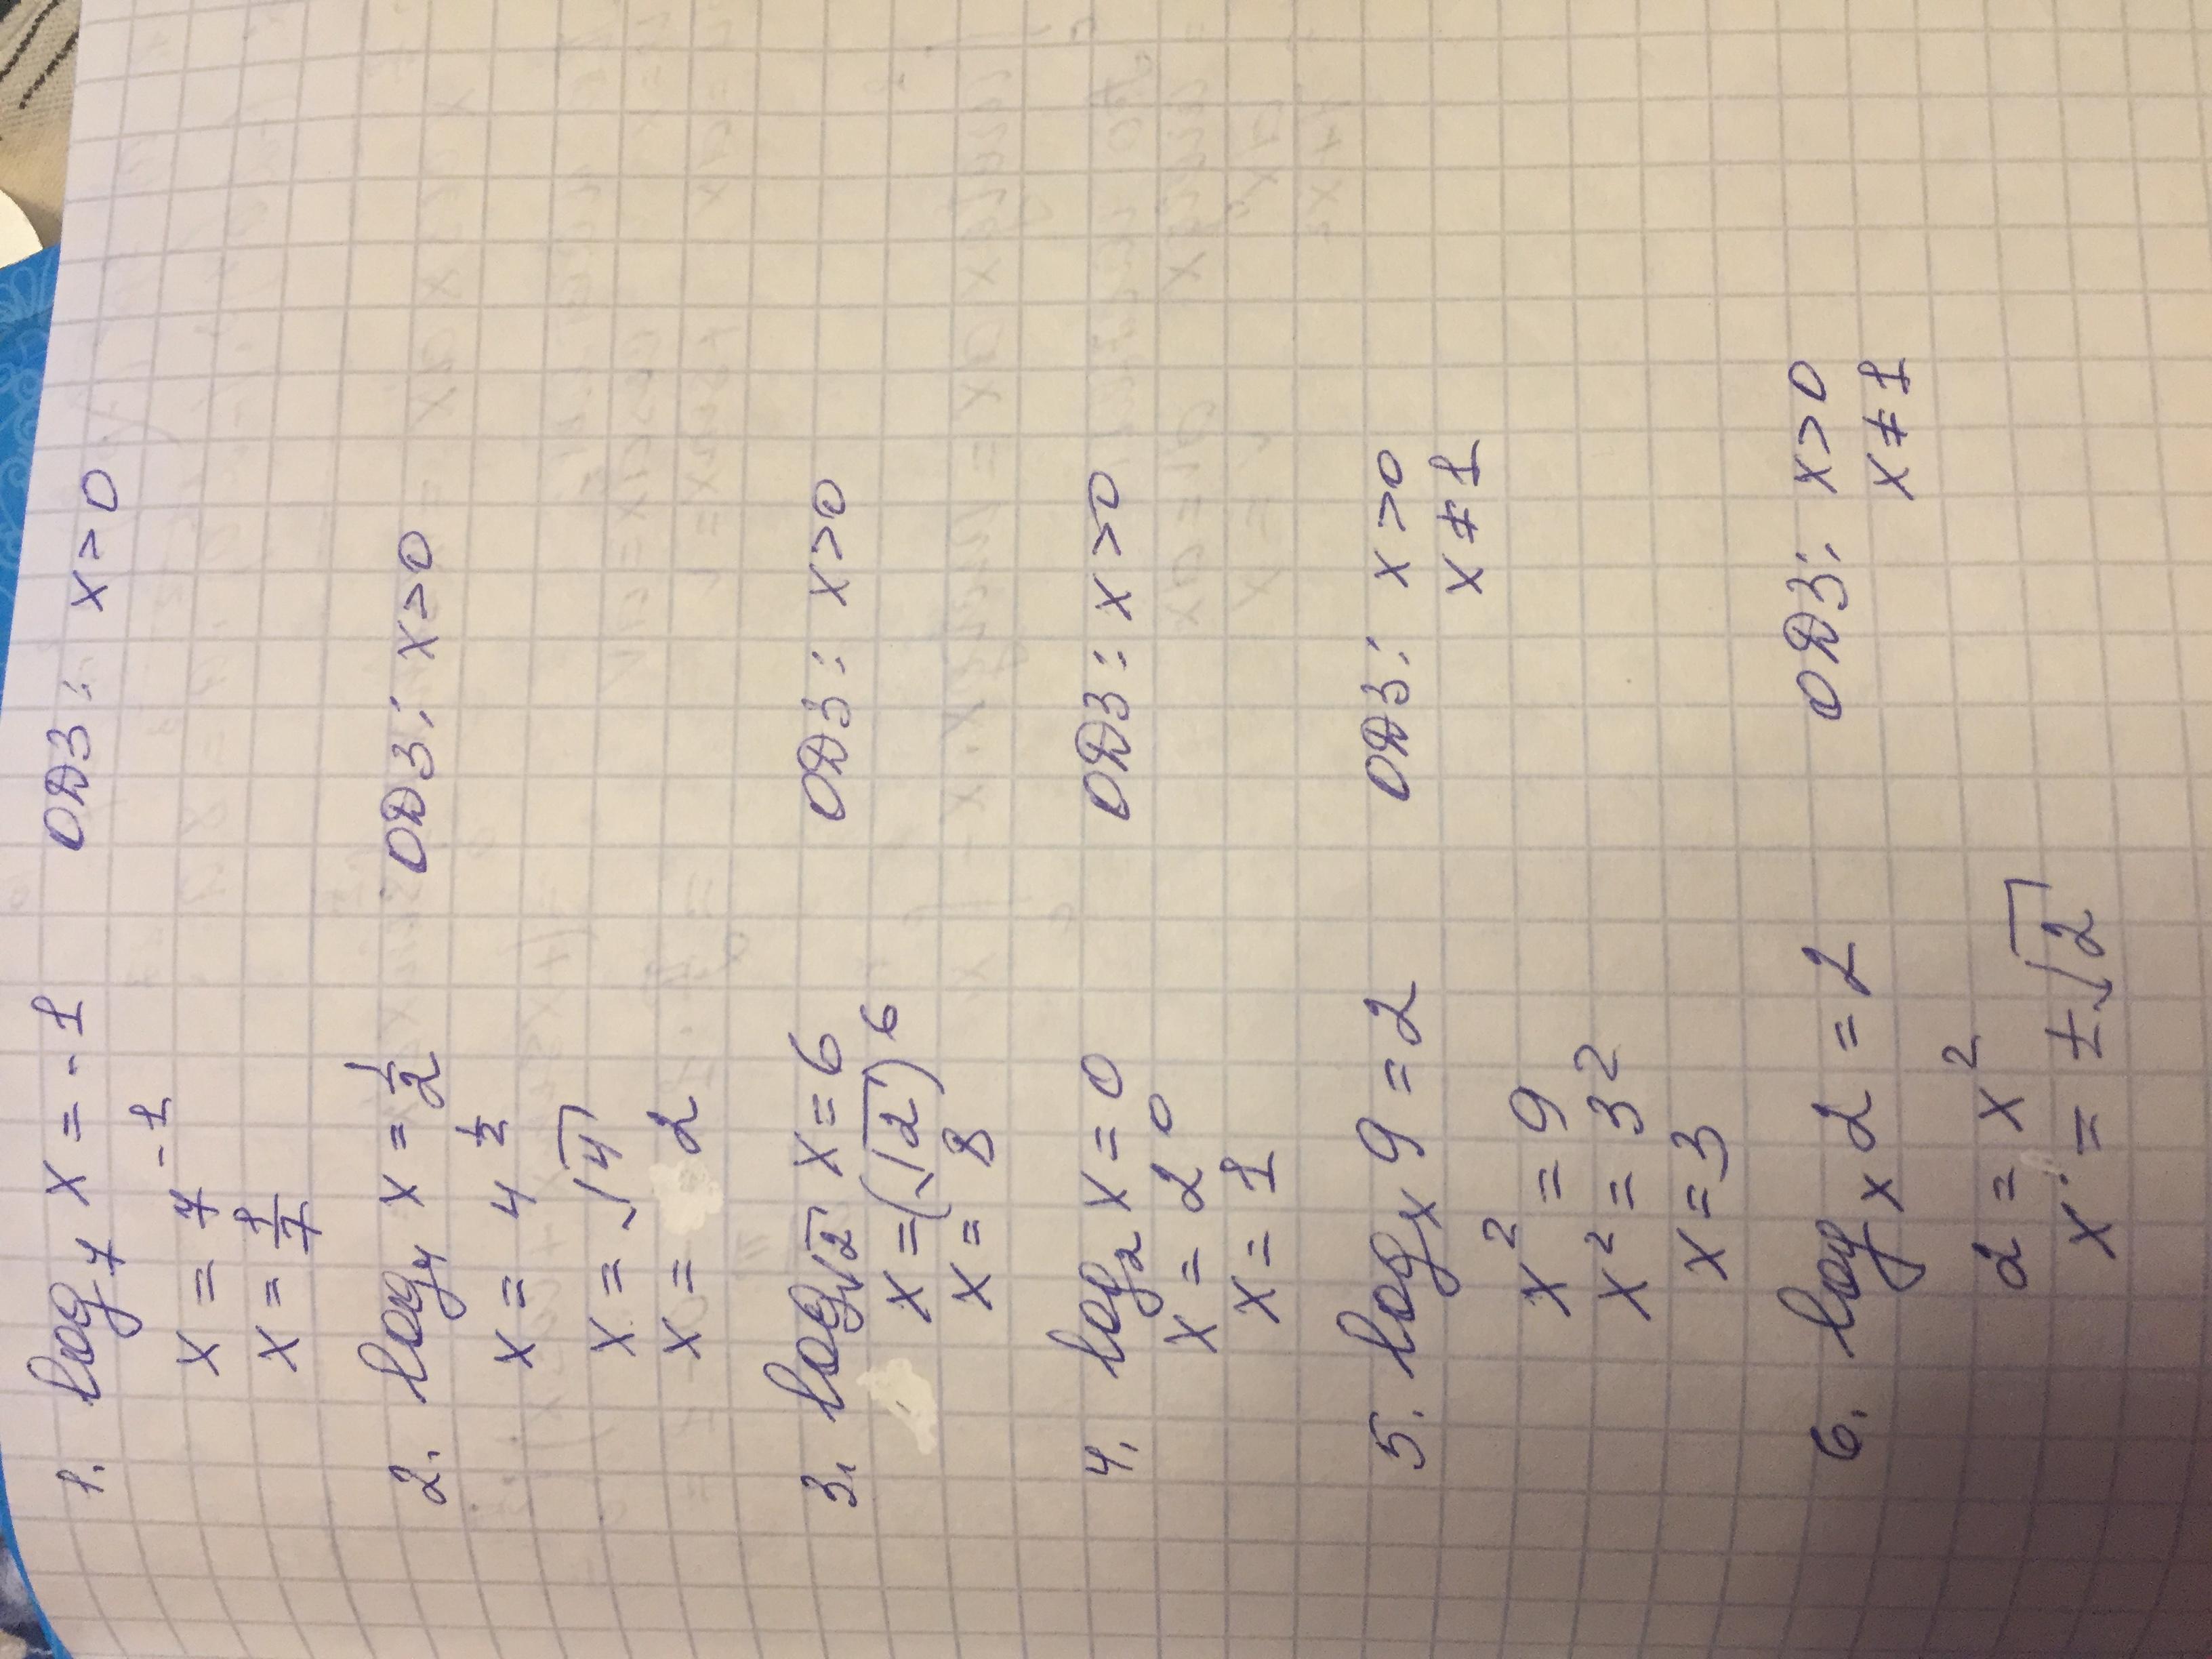 1. log₇ x = -1 ОДЗ: x>0
x = 7⁻¹
x = 1/7
2. log₄ x = 1/2 ОДЗ: x>0
x = 4^(1/2)
x = √4
x = 2
3. log_√2 x = 6 ОДЗ: x>0
x = (√2)⁶
x = 8
4. log₂ x = 0 ОДЗ: x>0
x = 2⁰
x = 1
5. logₓ 9 = 2 ОДЗ: x>0
x ≠ 1
x² = 9
x² = 3²
x = 3
6. logₓ 2 = 2 ОДЗ: x>0
x ≠ 1
2 = x²
x = ±√2